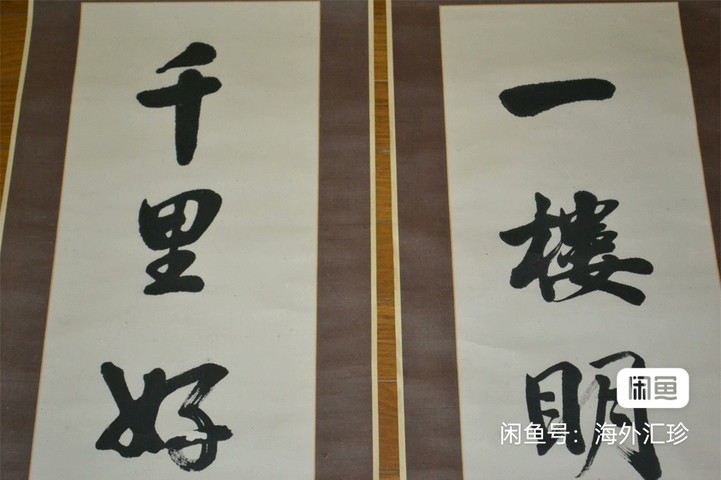 一楼明
千里好
闲鱼
闲鱼号：海外汇珍